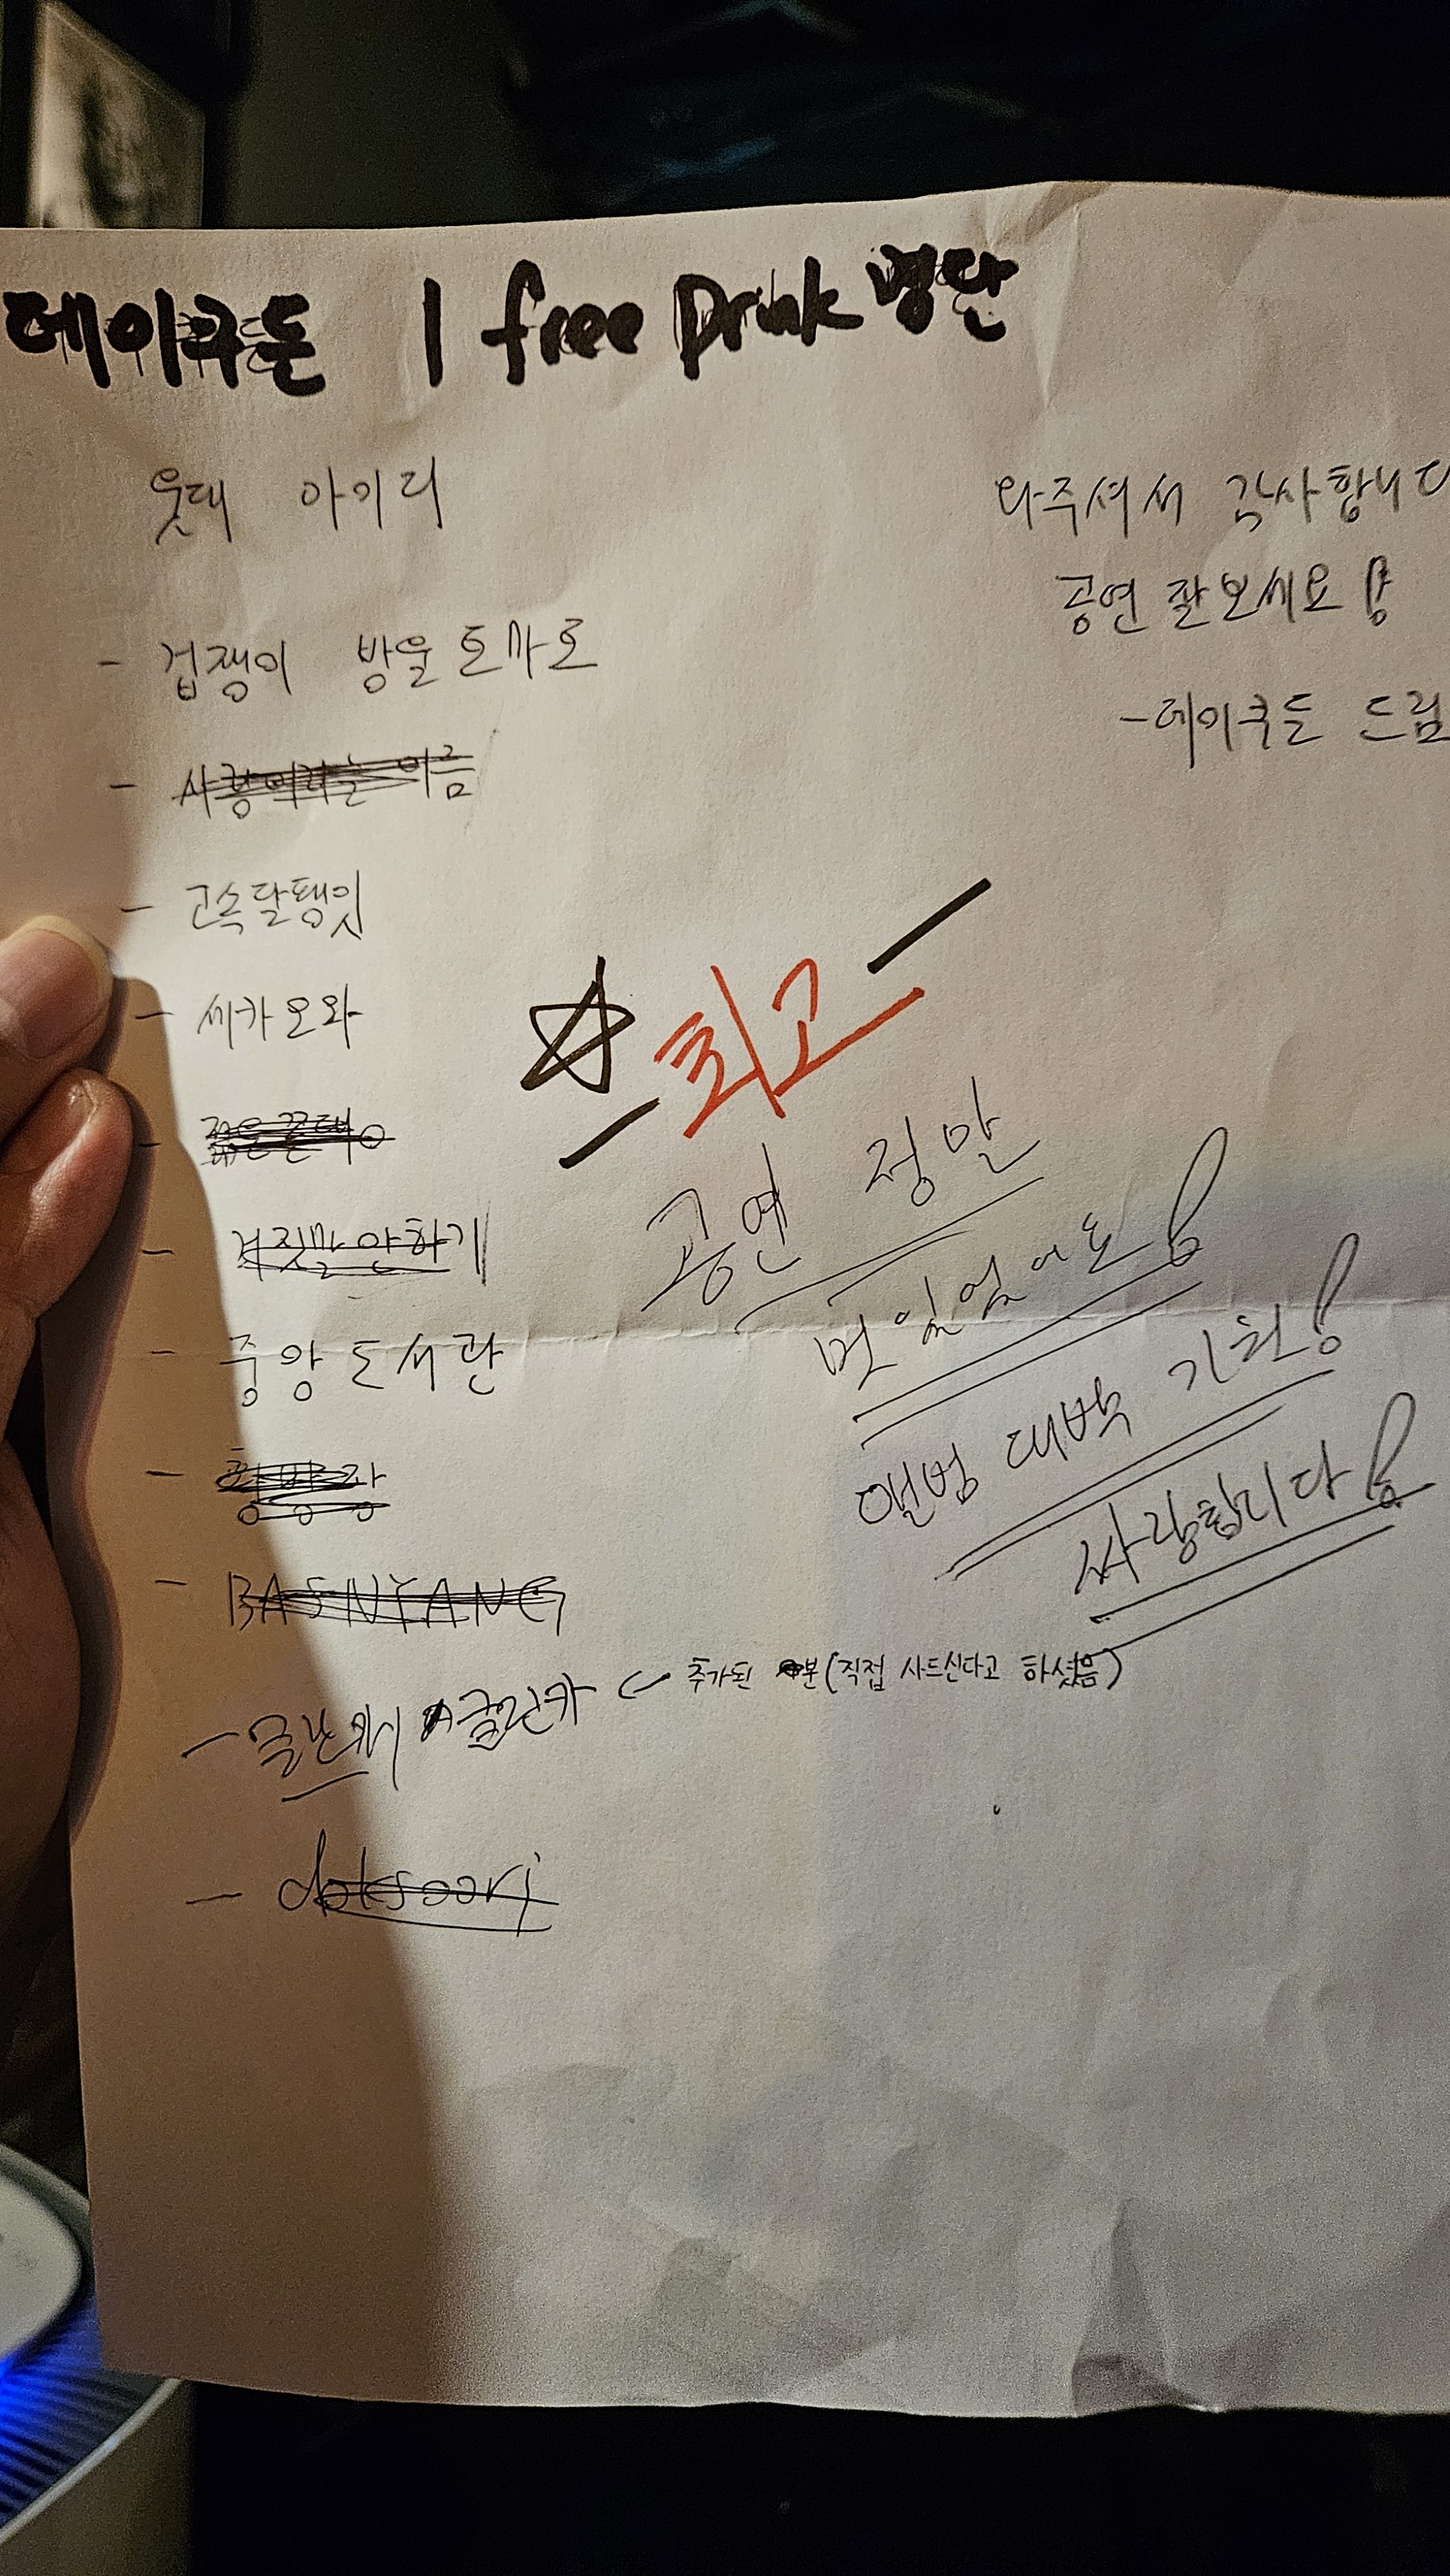 데이쿠돈 1 free Drink 명단
웃대 아기리
와주셔서 감사합니다
공연 잘보세요!
- 데이쿠돈 드림
- 겁쟁이 방울토마토
- 사랑이라는 이름
- 고속달팽잇
- 세카오와
- 거짓말 안하기
- 중앙도서관
- BASNYANG
☆ - 최고 -
공연 정말
멋있었어요!
앨범 대박 기원!
사랑합니다!
← 추가된 분 (직접 사드신다고 하셨음)
- doksoori